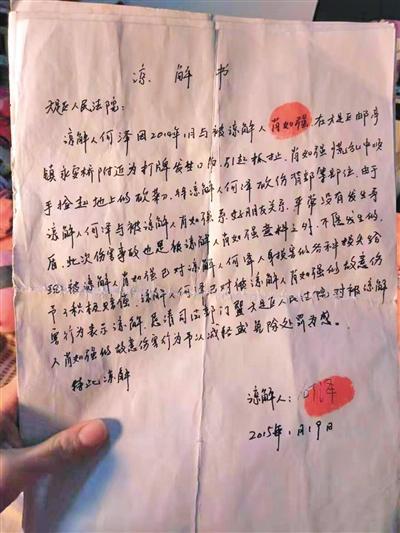 凉解书
大足区人民法院:
谅解人何泽因2014年1月与被谅解人肖如强在大足区邮亭
镇永安桥附近为打牌发生口角,引起抓扯,肖如强慌乱中顺
手捡起地上的砍菜刀,将谅解人何泽砍伤背部等部位,由于
谅解人何泽与被谅解人肖如强系好朋友关系,平常没有发生矛
盾,此次伤害事故也是被谅解人肖如强意料之外,不愿发生的。
现被谅解人肖如强已对谅解人何泽人身损害的各种损失给
予了积极赔偿。谅解人何泽已对被谅解人肖如强的故意伤
害行为表示谅解。恳请司法部门暨大足区人民法院对被谅解
人肖如强的故意伤害行为予以减轻或免除处罚为感。
特此谅解
谅解人:何泽
2015年1月19日